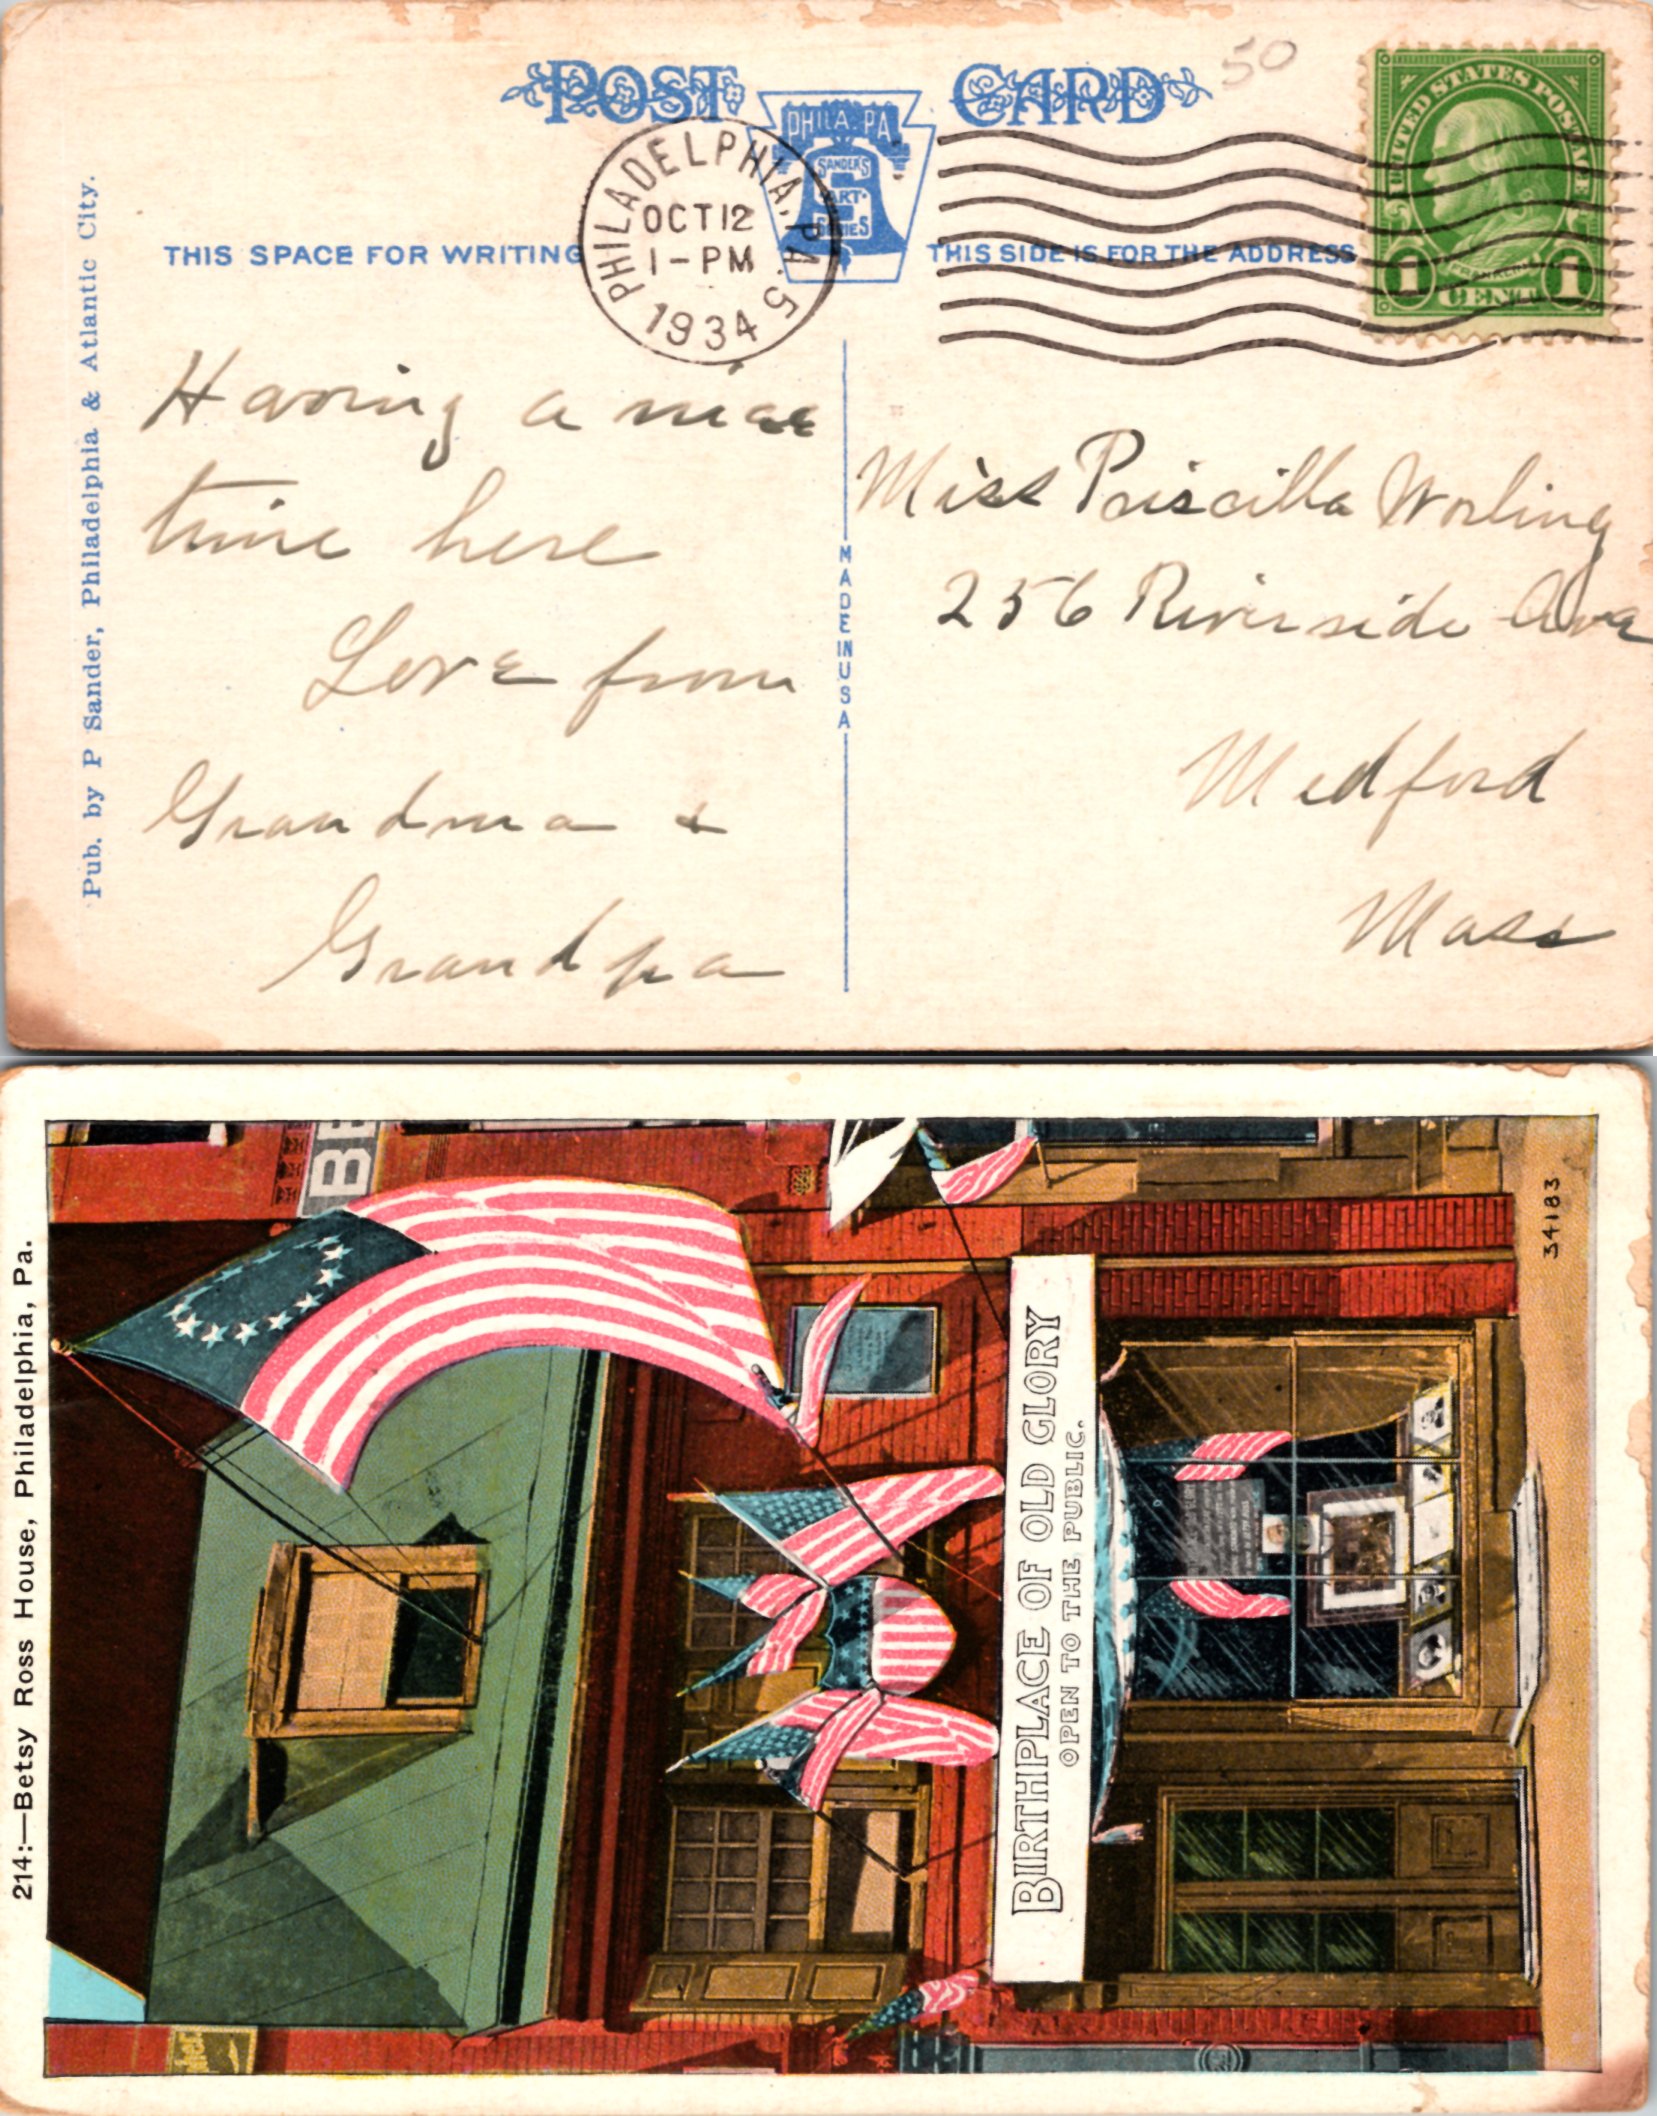 POST CARD
50
PHILA. PA.
SANDERS
ART
SERIES
PHILADELPHIA, PA. 5
OCT 12
1-PM
1934
UNITED STATES POSTAGE
FRANKLIN
1 CENT 1
THIS SPACE FOR WRITING
THIS SIDE IS FOR THE ADDRESS
Pub. by P Sander, Philadelphia & Atlantic City.
Having a nice
time here
Love from
Grandma &
Grandpa
MADE IN USA
Miss Priscilla Worling
256 Riverside Ave
Medford
Mass
214:—Betsy Ross House, Philadelphia, Pa.
BE
BIRTHPLACE OF OLD GLORY
OPEN TO THE PUBLIC.
34183